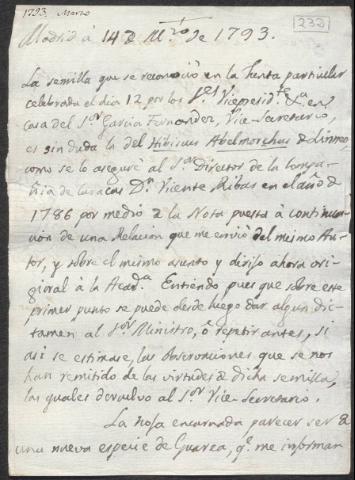 1793. Marzo
232
Madrid á 14 de M.zo de 1793.
La semilla que se reconoció en la Junta particular
celebrada el dia 12 por los S.res Vicepresid.te &.a en
casa del S.or García Fernandez, Vice-Secretario,
es sin duda la del Hibiscus Abelmoschus de Linneo
como se lo aseguré al S.or Director de la Compa-
ñia de Caracas D.n Vicente Ribas en el año de
1786 por medio de la Nota puesta á continua-
cion de una Relacion que me envió del mismo Au-
tor, y sobre el mismo asunto y dirijo ahora ori-
ginal á la Acad.a Entiendo pues que sobre este
primer punto se puede desde luego dar algun dic-
tamen al S.or Ministro, ó repetir antes, si
asi se estimase, las observaciones que se nos
han remitido de las virtudes de dicha semilla,
las quales devuelvo al S.or Vice-Secretario.
La hoja encarnada parecer ser de
una nueva especie de Guarea, q.e me informan